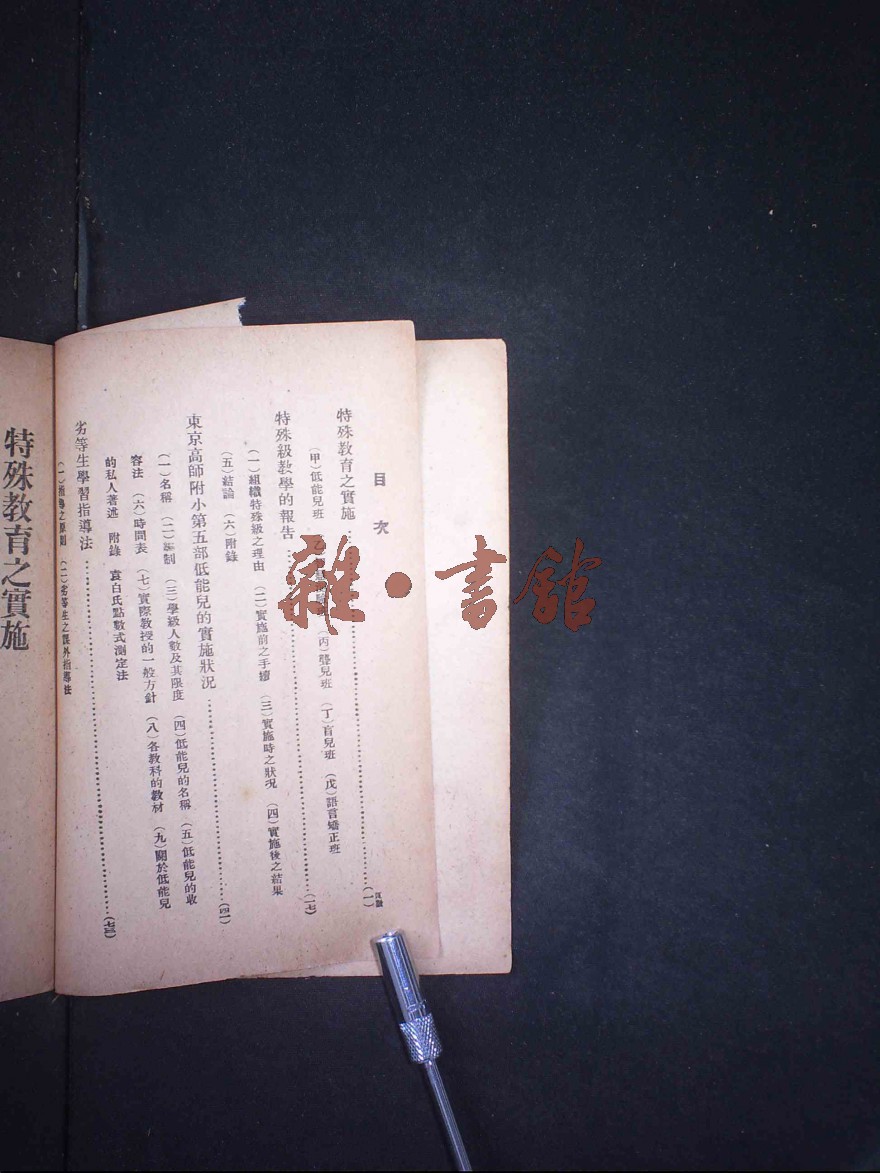 目次
頁數
特殊教育之實施……(一)
(甲)低能兒班 (丙)聾兒班 (丁)盲兒班 (戊)語言矯正班
特殊級教學的報告……(一七)
(一)組織特殊級之理由 (二)實施前之手續 (三)實施時之狀況 (四)實施後之結果
(五)結論 (六)附錄
東京高師附小第五部低能兒的實施狀況……(四一)
(一)名稱 (二)編制 (三)學級人數及其限度 (四)低能兒的名稱 (五)低能兒的收
容法 (六)時間表 (七)實際教授的一般方針 (八)各教科的教材 (九)關於低能兒
的私人著述 附錄 袁白氏點數式測定法
劣等生學習指導法……(七三)
(一)指導之原則 (二)劣等生之課外指導法
特殊教育之實施
雜·書館